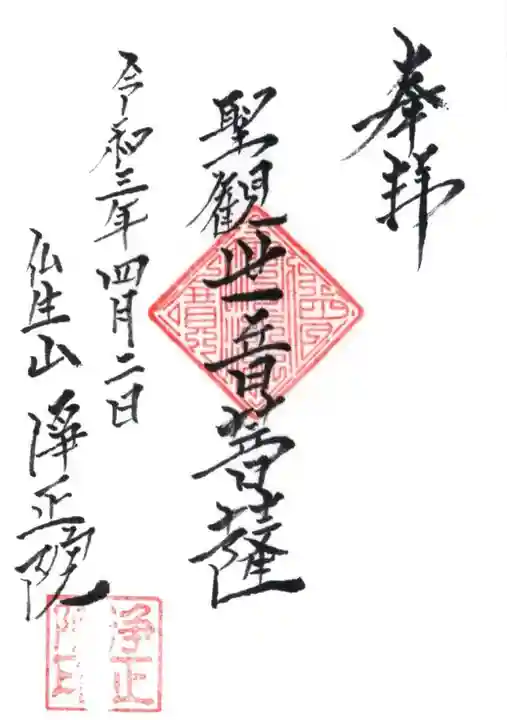 奉拝
聖観世音菩薩
令和三年四月二日
仏生山 浄正院
浄正
院